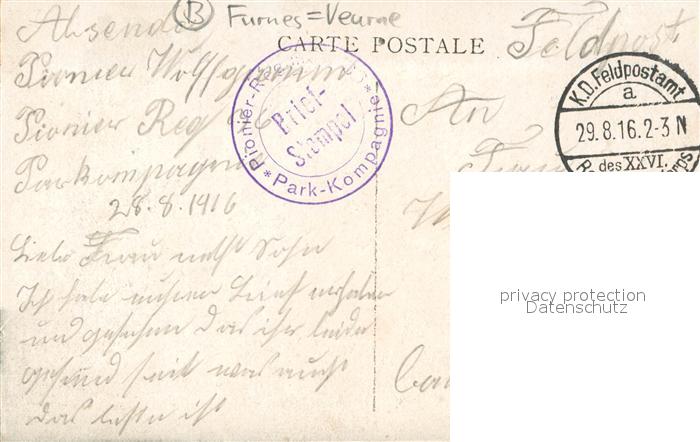 (B) Furnes = Veurne
CARTE POSTALE
Absender
Feldpost
Pionier Wolfgramm
Pionier Reg
Parkompagnie
28.8.1916
Pionier-Reg
Brief-
Stempel
*Park-Kompagnie*
An
Frau
K.D. Feldpostamt
a
29.8.16.2-3 N
des XXVI.
Liebe Frau nebst Sohn
Ich habe euren Brief erhalten
und gesehen das ihr beide
gesund seit was auch
das beste ist
privacy protection
Datenschutz